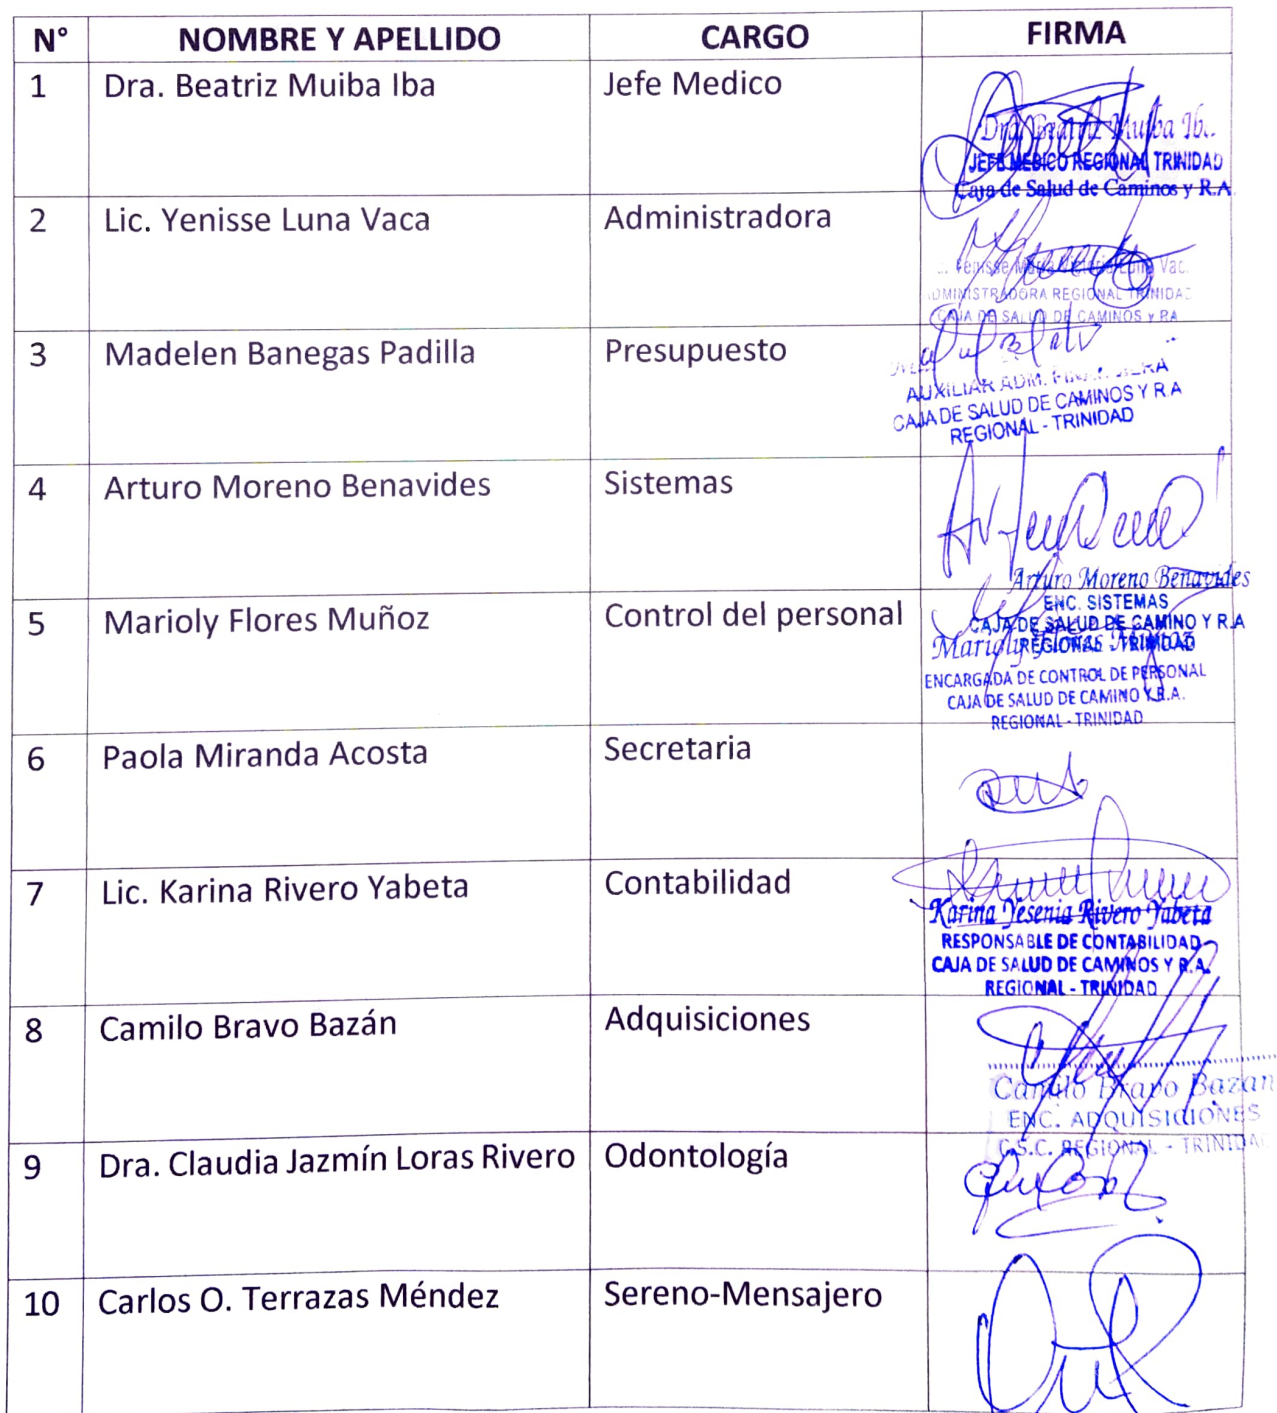 N° NOMBRE Y APELLIDO CARGO FIRMA
1 Dra. Beatriz Muiba Iba Jefe Medico
Dra. Beatriz Muiba Ib.
JEFE MEDICO REGIONAL TRINIDAD
Caja de Salud de Caminos y R.A
2 Lic. Yenisse Luna Vaca Administradora
Yenisse Maria Victoria Luna Vac.
ADMINISTRADORA REGIONAL TRINIDAD
CAJA DE SALUD DE CAMINOS y RA
3 Madelen Banegas Padilla Presupuesto
AUXILIAR ADM.
CAJA DE SALUD DE CAMINOS Y R.A
REGIONAL - TRINIDAD
4 Arturo Moreno Benavides Sistemas
Arturo Moreno Benavides
ENC. SISTEMAS
CAJA DE SALUD DE CAMINO Y R.A
REGIONAL - TRINIDAD
5 Marioly Flores Muñoz Control del personal
Marioly Flores Muñoz
ENCARGADA DE CONTROL DE PERSONAL
CAJA DE SALUD DE CAMINO Y R.A.
REGIONAL - TRINIDAD
6 Paola Miranda Acosta Secretaria
7 Lic. Karina Rivero Yabeta Contabilidad
Karina Yesenia Rivero Yabeta
RESPONSABLE DE CONTABILIDAD
CAJA DE SALUD DE CAMINOS Y R.A.
REGIONAL - TRINIDAD
8 Camilo Bravo Bazán Adquisiciones
Camilo Bravo Bazan
ENC. ADQUISICIONES
C.S.C. REGIONAL - TRINIDAD
9 Dra. Claudia Jazmín Loras Rivero Odontología
10 Carlos O. Terrazas Méndez Sereno-Mensajero